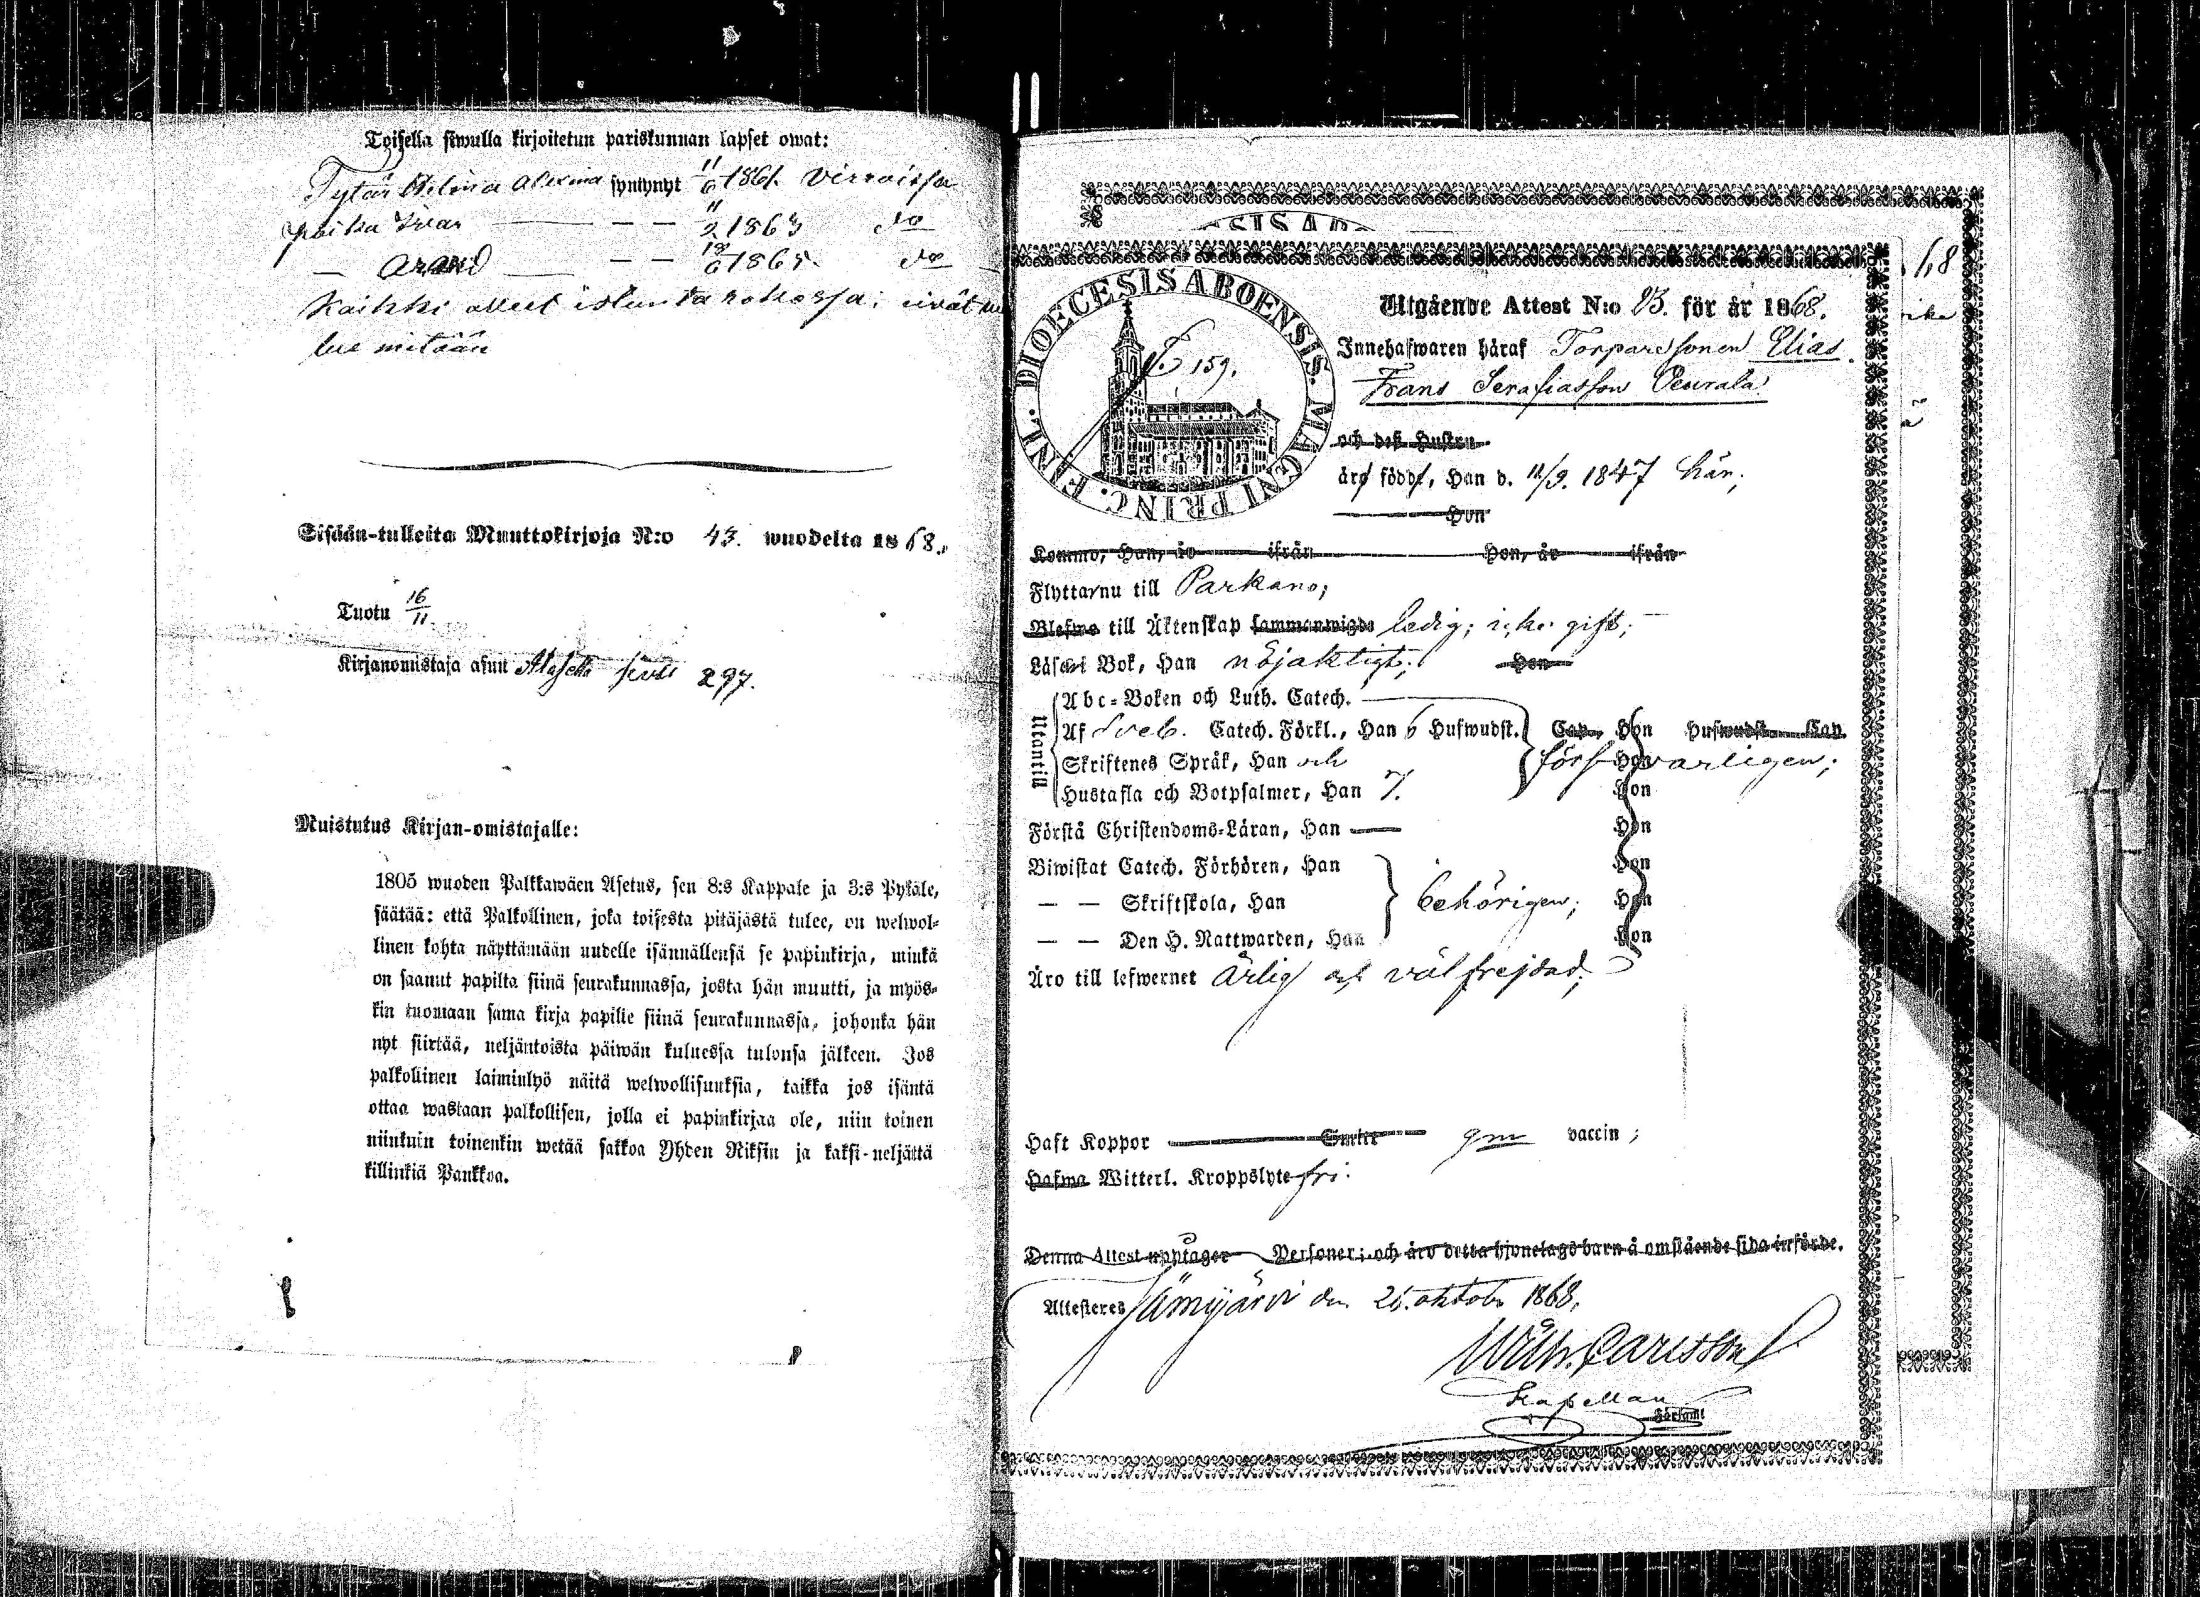 Toisella siwulla kirjoitetun pariskunnan lapset owat:
Tytär Helena syntynyt 11/6 1861. Virroissa
poika Ivar — — 11/2 1863 do
— — — 18/6 1865. do
Kaikki olleet istutta rokossa; eivät
lue mitään
Sisään-tulleita Muuttokirjoja N:o 43. wuodelta 1868.
Tuotu 16/11.
Kirjanomistaja asuu Alasella sivu 297.
Muistutus Kirjan-omistajalle:
1805 wuoden Palkkawäen Asetus, sen 8:s Kappale ja 3:s Pykäle,
säätää: että Palkollinen, joka toisesta pitäjästä tulee, on welwol-
linen kohta näyttämään uudelle isännällensä se papinkirja, minkä
on saanut papilta siinä seurakunnassa, josta hän muutti, ja myös-
kin tuomaan sama kirja papille siinä seurakunnassa, johonka hän
nyt siirtää, neljäntoista päiwän kuluessa tulonsa jälkeen. Jos
palkollinen laiminlyö näitä welwollisuuksia, taikka jos isäntä
ottaa wastaan palkollisen, jolla ei papinkirjaa ole, niin toinen
niinkuin toinenkin wetää sakkoa Yhden Riksin ja kaksi-neljättä
killinkiä Pankkoa.
SIS AB
68
DIOECESIS ABOENSIS. MAGNI PRINC. FINL.
159.
Utgående Attest N:o 83. för år 1868.
Innehafwaren häraf Torparesonen Elias
Frans Serafiasson Peurala
och deß Hustru
äro födde, Han d. 12/9. 1847 här;
Hon
Komne, Han, år ifrån Hon, år ifrån
Flyttarnu till Parkano;
Blefwo till Äktenskap sammanwigde ledig; icke gift;
Läsa i Bok, Han nöjaktigt; Hon
Utantill
Abc-Boken och Luth. Catech.
Af Sveb. Catech. Förkl., Han 6 Hufwudst. Cap. Hon Hufwudst. Cap.
Skriftenes Språk, Han och Hon försvarligen;
Hustafla och Botpsalmer, Han 7. Hon
Förstå Christendoms-Läran, Han — Hon
Biwistat Catech. Förhören, Han Hon
— — Skriftskola, Han behörigen; Hon
— — Den H. Nattwarden, Han Hon
Äro till lefwernet ärlig och välfrejdad;
Haft Koppor vaccin;
Hafwa Witterl. Kroppslyte fri.
Denna Attest upptager Personer; och äro detta hjonelags barn å omstående sida införde.
Attesteres Jämijärvi den 26. oktob. 1868.
Wilh. Carlsson
Kapellan
Församl